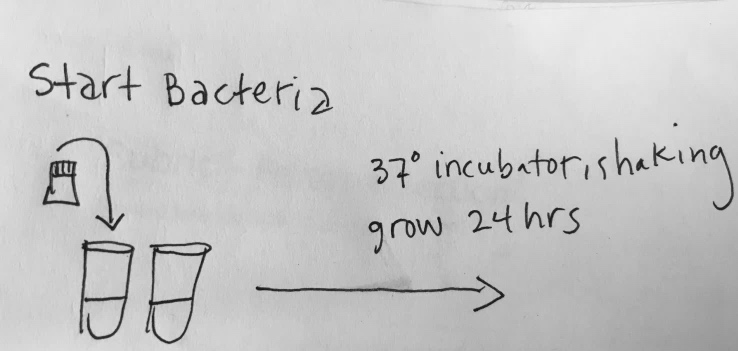 Start Bacteria
37° incubator, shaking
grow 24 hrs